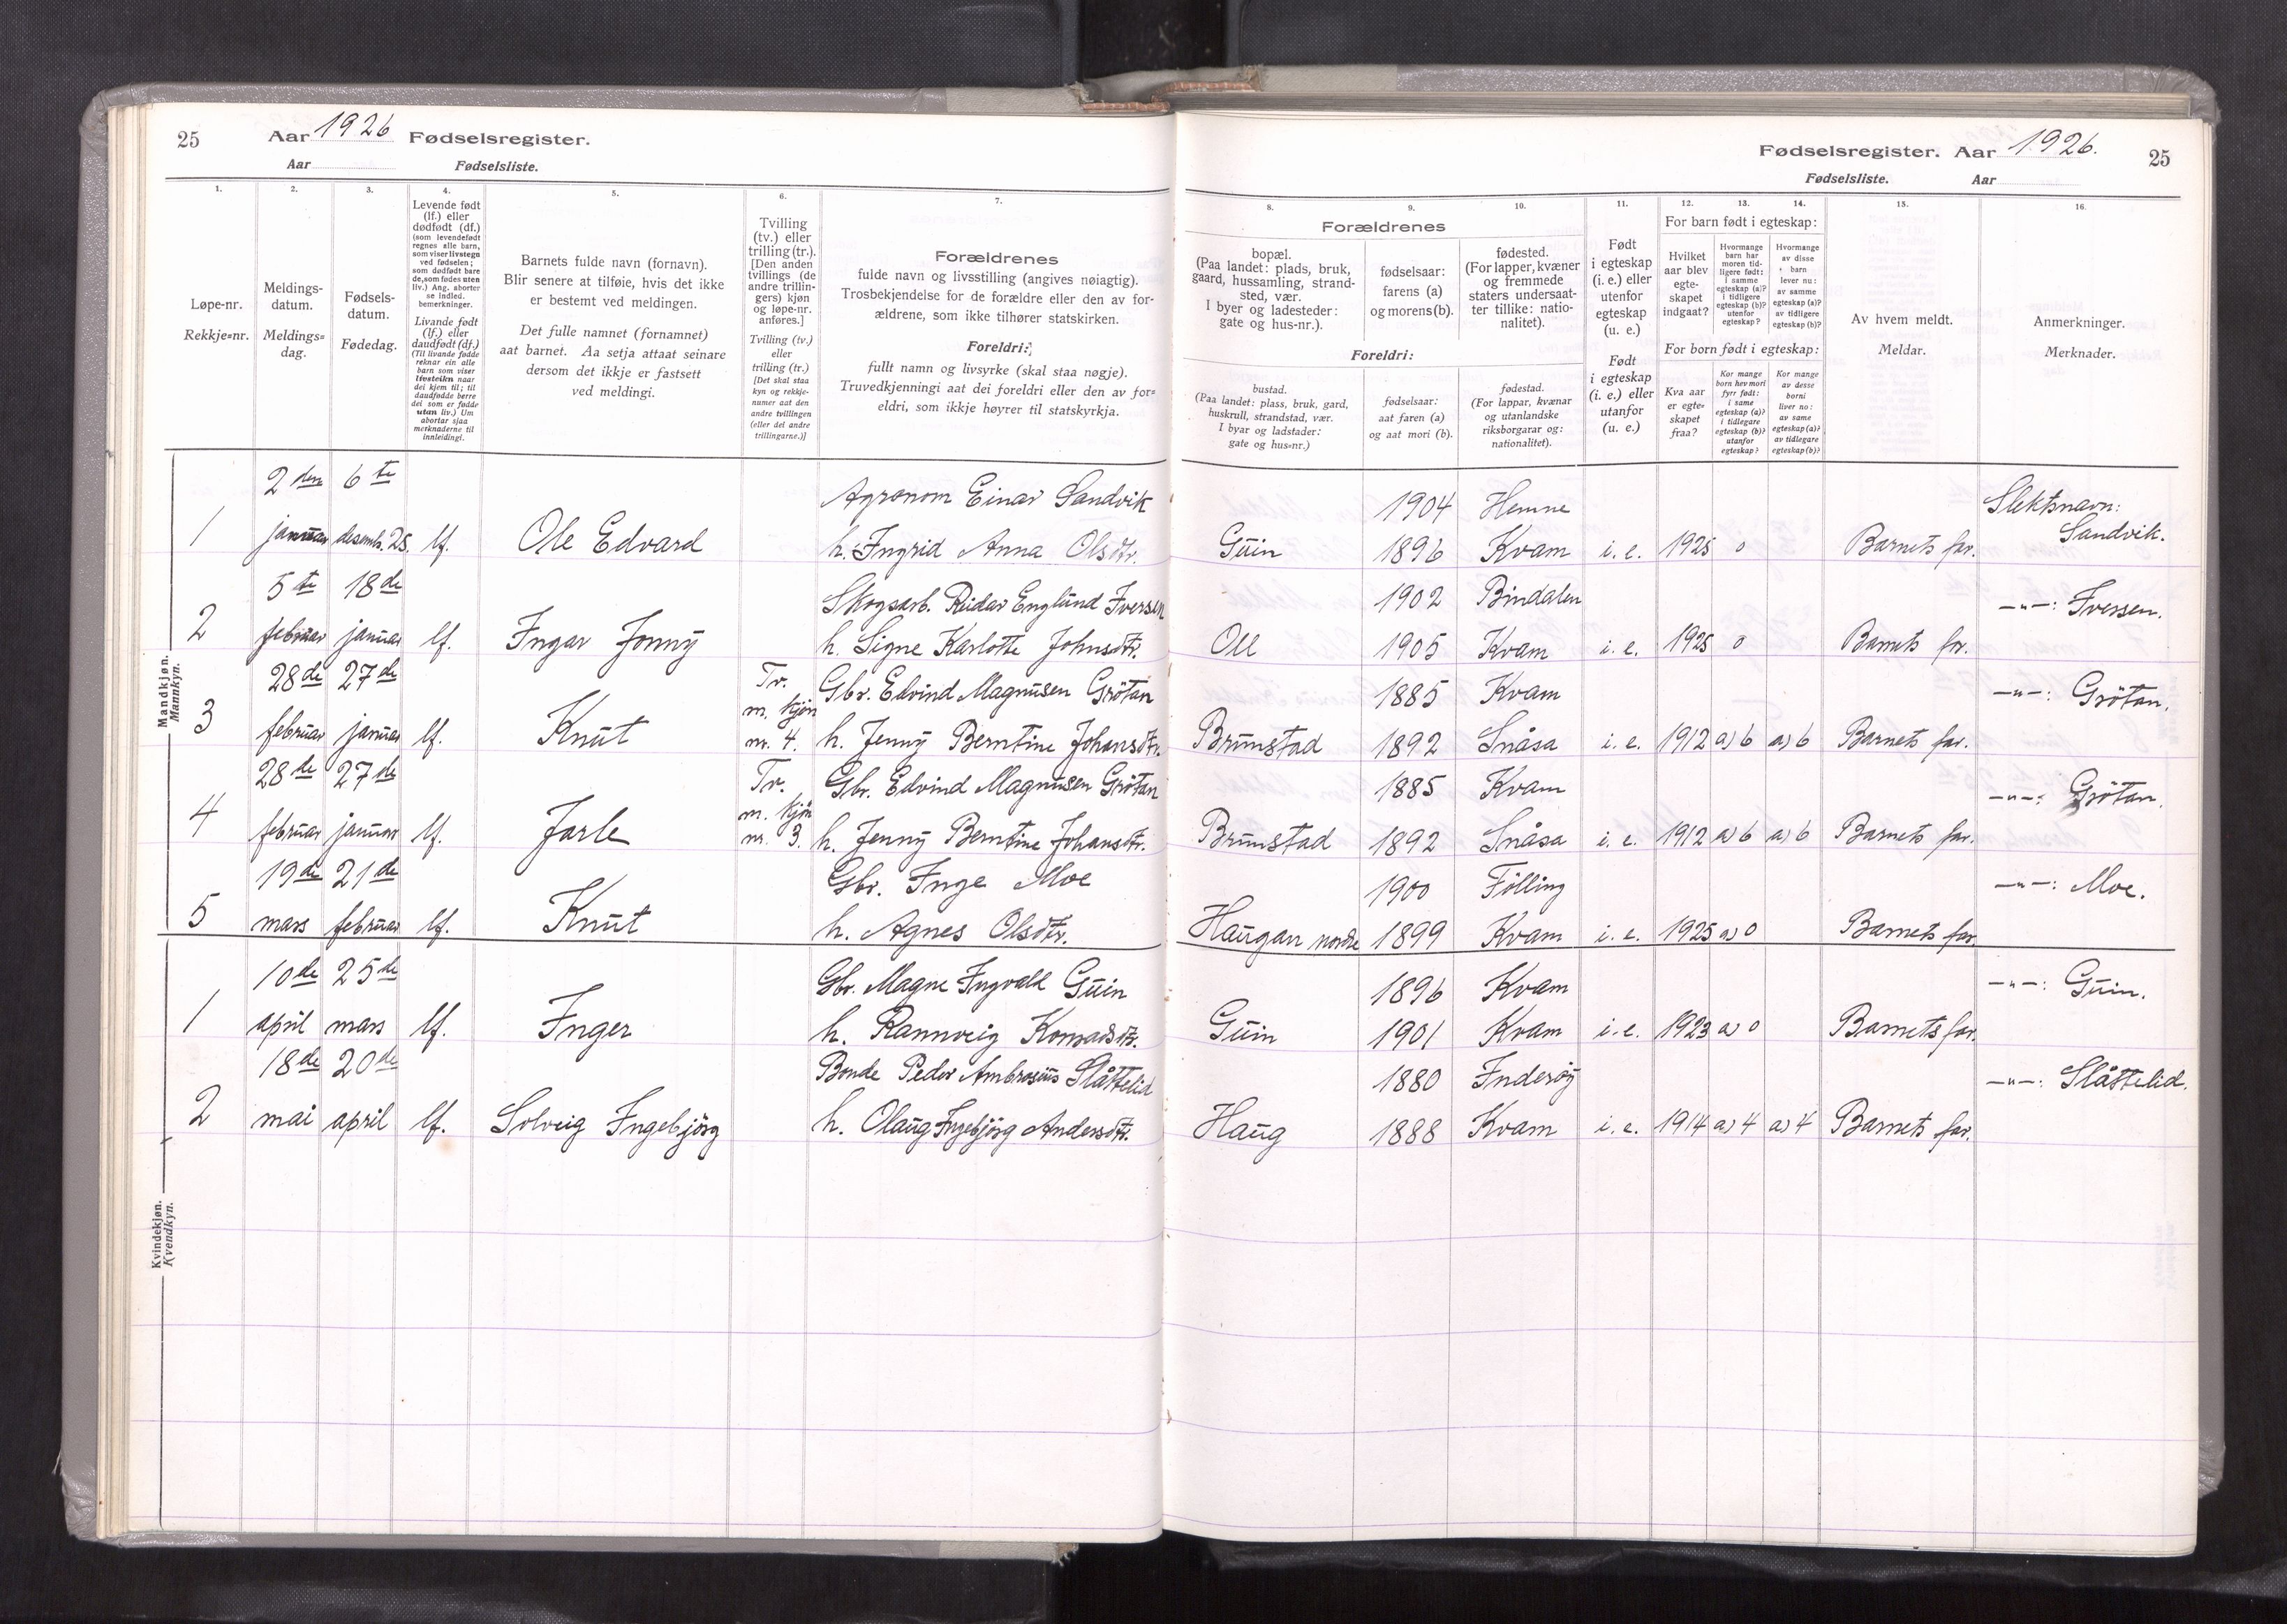 25 Aar 1926 Fødselsregister.
Aar Fødselsliste.
1.
Løpe-nr.
Rekkje=nr.
2.
Meldings-
datum.
Meldings=
dag.
3.
Fødsels-
datum.
Fødedag.
4.
Levende født
(lf.) eller
dødfødt (df.)
(som levendefødt
regnes alle barn,
som viser livstegn
ved fødselen;
som dødfødt bare
de, som fødes uten
liv.) Ang. aborter
se indled.
bemerkninger.
Livande født
(lf.) eller
daudfødt (df.)
(Til livande fødde
reknar ein alle
barn som viser
livsteikn naar
dei kjem til; til
daudfødde berre
dei som er fødde
utan liv.) Um
abortar sjaa
merknaderne til
innleidingi.
5.
Barnets fulde navn (fornavn).
Blir senere at tilføie, hvis det ikke
er bestemt ved meldingen.
Det fulle namnet (fornamnet)
aat barnet. Aa setja attaat seinare
dersom det ikkje er fastsett
ved meldingi.
6.
Tvilling
(tv.) eller
trilling (tr.).
[Den anden
tvillings (de
andre trillin-
gers) kjøn
og løpe-nr.
anføres.]
Tvilling (tv.)
eller
trilling (tr.)
[Det skal staa
kyn og rekkje-
numer aat den
andre tvillingen
(eller dei andre
trillingarne.)]
7.
Forældrenes
fulde navn og livsstilling (angives nøiagtig).
Trosbekjendelse for de forældre eller den av for-
ældrene, som ikke tilhører statskirken.
Foreldri:
fullt namn og livsyrke (skal staa nøgje).
Truvedkjenningi aat dei foreldri eller den av for=
eldri, som ikkje høyrer til statskyrkja.
Mandkjøn.
Mannkyn.
2den 6te Agronom Einar Sandvik
1 januar desemb. 25. lf. Ole Edvard h. Ingrid Anna Olsdtr.
5te 18de Skogsarb. Reidar Englund Iversen
2 februar januar lf. Ingar Jonny h. Signe Karlotte Johnsdtr.
28de 27de Tv. m. kjøn Gbr. Edvind Magnusen Grötan
3 februar januar lf. Knut nr. 4. h. Jenny Berntine Johansdtr.
28de 27de Tv. m. kjøn Gbr. Edvind Magnusen Grötan
4 februar januar lf. Jarle nr. 3. h. Jenny Berntine Johansdtr.
19de 21de Gbr. Inge Moe
5 mars februar lf. Knut h. Agnes Olsdtr.
Kvindekjøn.
Kvendkyn.
10de 25de Gbr. Magne Ingvald Guin
1 april mars lf. Inger h. Rannveig Konradsdtr.
18de 20de Bonde Peder Ambrosius Slåttelid
2 mai april lf. Solveig Ingebjörg h. Olaug Ingebjörg Andersdtr.
Fødselsregister. Aar 1926. 25
Fødselsliste. Aar
8.
Forældrenes
bopæl.
(Paa landet: plads, bruk,
gaard, hussamling, strand-
sted, vær.
I byer og ladesteder:
gate og hus-nr.).
9.
fødselsaar:
farens (a)
og morens (b).
10.
fødested.
(For lapper, kvæner
og fremmede
staters undersaat-
ter tillike: natio-
nalitet).
Foreldri:
bustad.
(Paa landet: plass, bruk, gard,
huskrull, strandstad, vær.
I byar og ladstader:
gate og hus=nr.)
fødselsaar:
aat faren (a)
og aat mori (b).
fødestad.
(For lappar, kvænar
og utanlandske
riksborgarar og:
nationalitet).
11.
Født
i egteskap
(i. e.) eller
utenfor
egteskap
(u. e.)
Født
i egteskap
(i. e.) eller
utanfor
(u. e.)
12. 13. 14.
For barn født i egteskap:
Hvilket
aar blev
egte-
skapet
indgaat?
Hvormange
barn har
moren tid-
ligere født:
i samme
egteskap (a)?
i tidligere
egteskap (b)?
utenfor
egteskap?
Hvormange
av disse
barn
lever nu:
av samme
egteskap (a)?
av tidligere
egteskap (b)?
For born født i egteskap:
Kva aar
er egte=
skapet
fraa?
Kor mange
born hev mori
fyrr født:
i same
egteskap (a)?
i tidlegare
egteskap (b)?
utanfor
egteskap?
Kor mange
av desse
borni
liver no:
av same
egteskap (a)?
av tidlegare
egteskap (b)?
15.
Av hvem meldt.
Meldar.
16.
Anmerkninger.
Merknader.
1904 Hemne Slektsnavn:
Guin 1896 Kvam i. e. 1925 0 Barnets far. Sandvik.
1902 Bindalen —"—: Iversen.
Oll 1905 Kvam i. e. 1925 0 Barnets far.
1885 Kvam —"—: Grötan.
Brunstad 1892 Snåsa i. e. 1912 a) 6 a) 6 Barnets far.
1885 Kvam —"—: Grötan.
Brunstad 1892 Snåsa i. e. 1912 a) 6 a) 6 Barnets far.
1900 Fölling —"—: Moe.
Haugan nordre 1899 Kvam i. e. 1925 a) 0 Barnets far.
1896 Kvam —"—: Guin.
Guin 1901 Kvam i. e. 1923 a) 0 Barnets far.
1880 Inderöy —"—: Slåttelid.
Haug 1888 Kvam i. e. 1914 a) 4 a) 4 Barnets far.